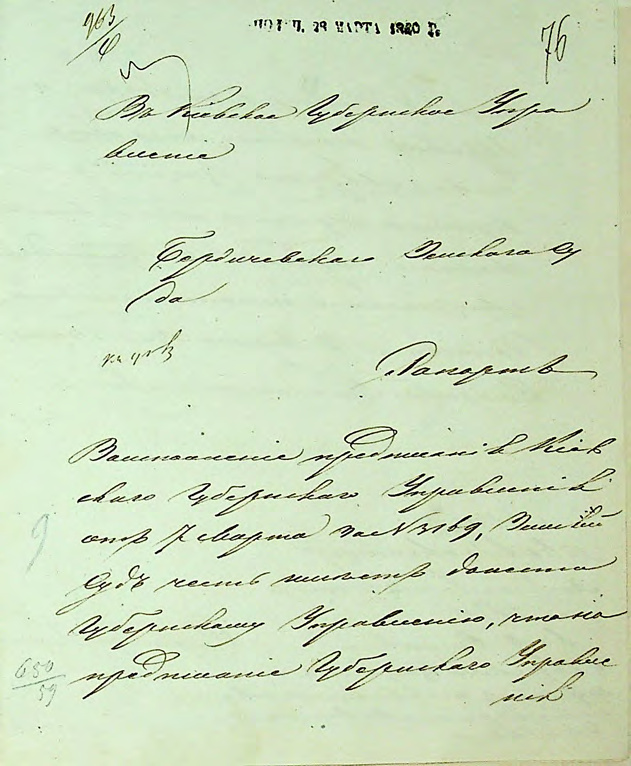 963/4
ПОЛ Ч. 28 МАРТА 1860 Г.
76
Въ Кіевское Губернское Упра
вленіе
Бердичевскаго Земскаго Су
да
Рапортъ
Во исполненіе предписанія Кіев
скаго Губернскаго Управленія
отъ 7 Марта за № 3169, Земскій
Судъ честь имѣетъ донести
Губернскому Управленію, что на
предписаніе Губернскаго Управле
нія
9
650/59